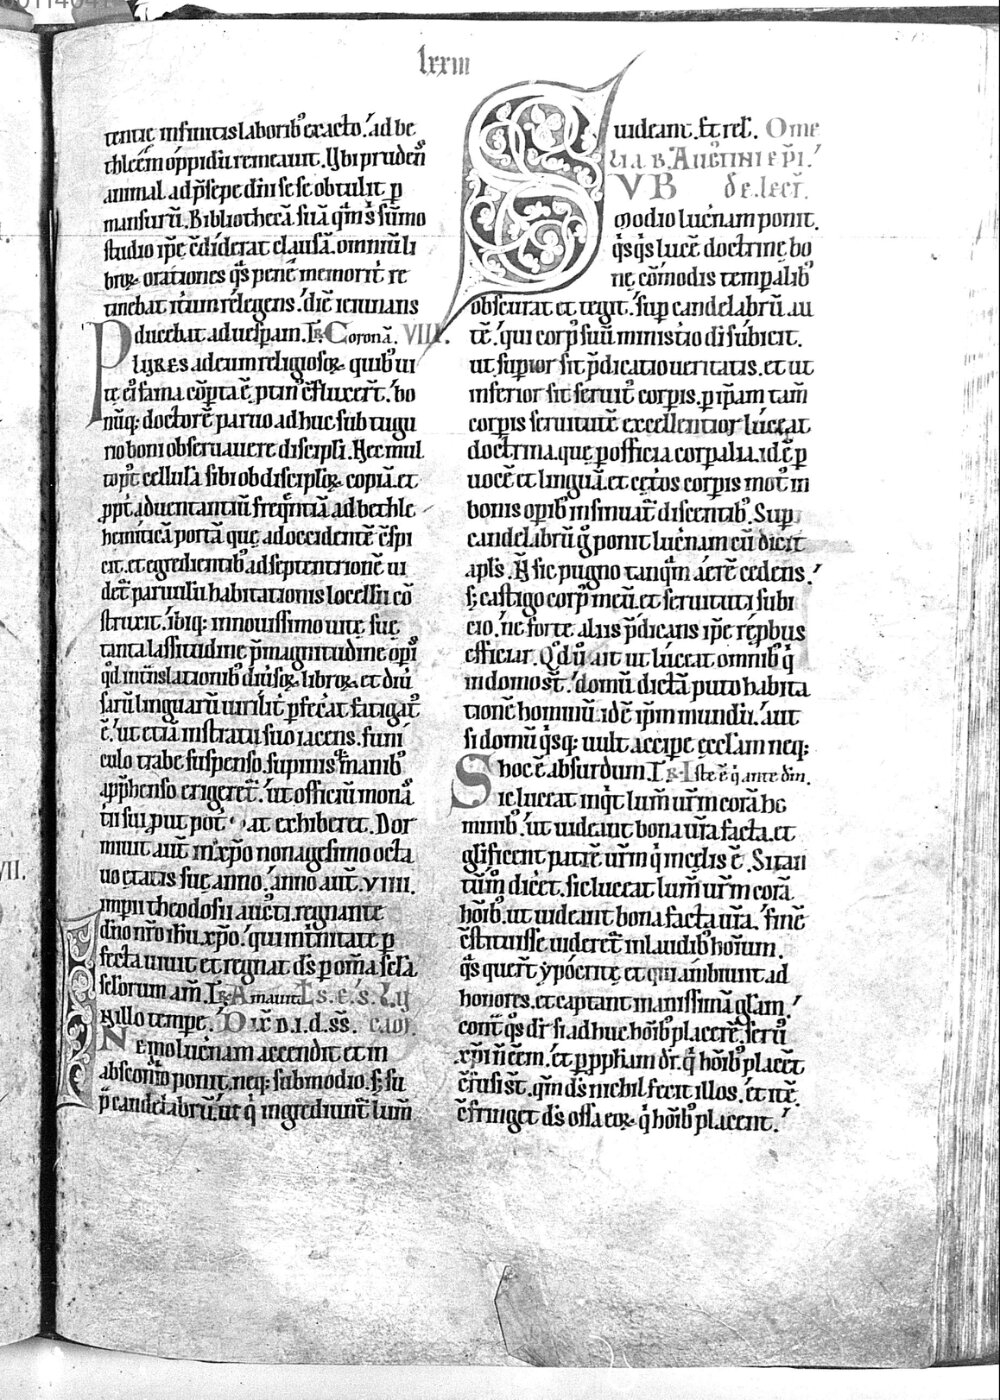 lxxiii
tentie infinitis laborib; exacto. ad be
thleem oppidū remeauit. Vbi prudens
animal ad p̄sepe dñi se se obtulit p
mansurū. Bibliothecā suā qm̄ sūmo
studio ip̄e cōdiderat clausā. omniū li
broꝝ orationes qs̄ pene memorit̄ re
tinebat itiumrelegens. die ieiunans
ducebat ad uesperam. R̄ Coronā. VIII.
Plures ad eum religiosoꝝ quib; ui
te ei fama cōpta ē ptin ēfluxert̄. bo
niq; doctorē paruo adhuc sub tugu
rio boni obseruauere discipli. Hec mul
to pt̄ cellulā sibi ob discipl̄oꝝ copiā. et
ppt̄ aduentantiū freq̄ntiā ad bethle
hemiticā portā que ad occidentē cspi
cit. et egredientib; ad septentrionē ui
det̄ paruulū habitationis locellū cō
struxit. ibiq; in nouissimo uite sue
tanta lassitudine p̄ magnitudine opi
qd in t̄nslationib; diuisoꝝ libroꝝ et diu
sarū linguarū uirilit̄ pfecat̄ fatigat̄
ē. ut etiā in stratu suo iacens. funi
culo trabe suspenso. supinis manib;
app̄henso erigeret̄. ut officiū monā
tii sui put pot at exhiberet. Dor
miuit aut̄ in xp̄o nonagesimo octa
uo etatis sue anno. anno aut̄. VIIII.
imp̄ii theodosii aucti regnante
dn̄o nr̄o ihū xp̄o. qui in t̄nitate p
fecta uiuit et regnat ds̄ p om̄a scl̄a
sclorum am̄. R̄ Amauit. L s. e. s. Ly
N illo tempe. Dix̄ n. i. d. ss̄. cap.
Nemo lucernam accendit et in
absconso ponit. neq; sub modio. s; su
p̄ candelabrū. ut q̄ ingrediunt̄ lum̄
uideant. Et rel. Ome
lia b. Augtini epi.
SVB de lect̄.
modio lucernam ponit.
qs̄qs̄ lucē doctrine bo
nę cōmodis temp̄alib;
obscurat et tegit. sup candelabrū. au
tē. qui corp; suū ministio di subicit.
ut supior sit p̄dicatio ueritatis. et ut
inferior sit seruit̄ corpis. p ip̄am tam̄
corpis seruitutē excellentior luceat
doctrina. que p officia corpalia. id ē p
uocē et linguā. et cet̄os corpis mot; in
bonis opib; insinuat̄ discentib;. Sup
candelabrū g̊ ponit lucernam cū dicit
apl̄s. Ñ sic pugno tanq̄m aerē cedens.
s; castigo corp; meū. et seruituti subi
cio. ne forte aliis p̄dicans ip̄e repbus
efficiar. Qd dū ait ut luceat omnib; q̄
in domo st̄. domū dictā puto habita
tionē hominū. id ē ip̄m mundū. aut
si domū qs̄q; uult accipe eccl̄am neq;
hoc ē absurdum. R̄ Iste ē q̄ ante dm̄.
Sic luceat inqt̄ lum̄ ur̄m corā ho
minib;. ut uideant bona ur̄a facta. et
gl̄ificent patrē ur̄m q̄ in celis ē. Si tan
tūm dicet̄. sic luceat lum̄ ur̄m corā.
hōib;. ut uideant bona facta ur̄a. finē
cstituisse uideret̄ in laudib; hoīnum.
qs̄ querit̄ ypocrite et qui ambiunt ad
honores. et captant inanissimā gl̄am.
cont̄ qs̄ dr̄ si adhuc hōib; placerē. seru;
xp̄i n̄ eem̄. Et p pph̄am dr̄. q̄ hōib; placēt
cfusi st̄. qm̄ ds̄ nichil fecit illos. et itē.
cfringet ds̄ ossa eoꝝ q̄ hōib; placent.
VII.